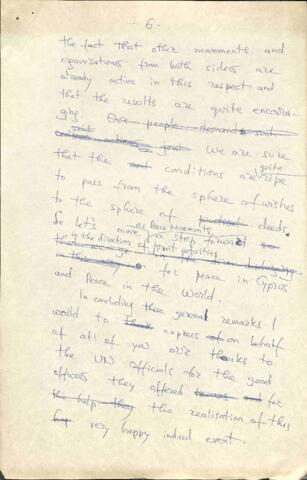 - 6 -
the fact that other movements and
organisations from both sides are
already active in this respect and
that the results are quite encoura-
ging. Our people demand such
We are sure
that the conditions are quite ripe
to pass from the sphere of wishes
to the sphere of deeds.
So let's move a step forward
as Peace movements
in the direction of joint activities
for peace in Cyprus
and Peace in the World.
In concluding these general remarks I
would to express on behalf
of all of you our thanks to
the UN Officials for the good
offices they offered for
the help they the realisation of this
very happy indeed event.